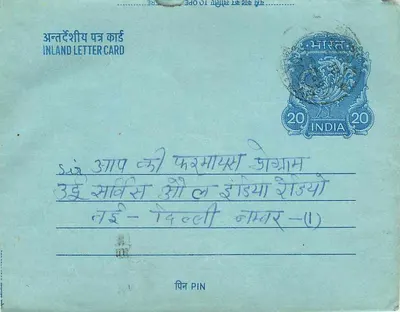 अन्तर्देशीय पत्र कार्ड
INLAND LETTER CARD
भारत
20 INDIA 20
आप की फरमायस प्रोग्राम
उर्दू सर्विस औल इंडिया रेडियो
नई - दिल्ली नम्बर -(1)
पिन PIN